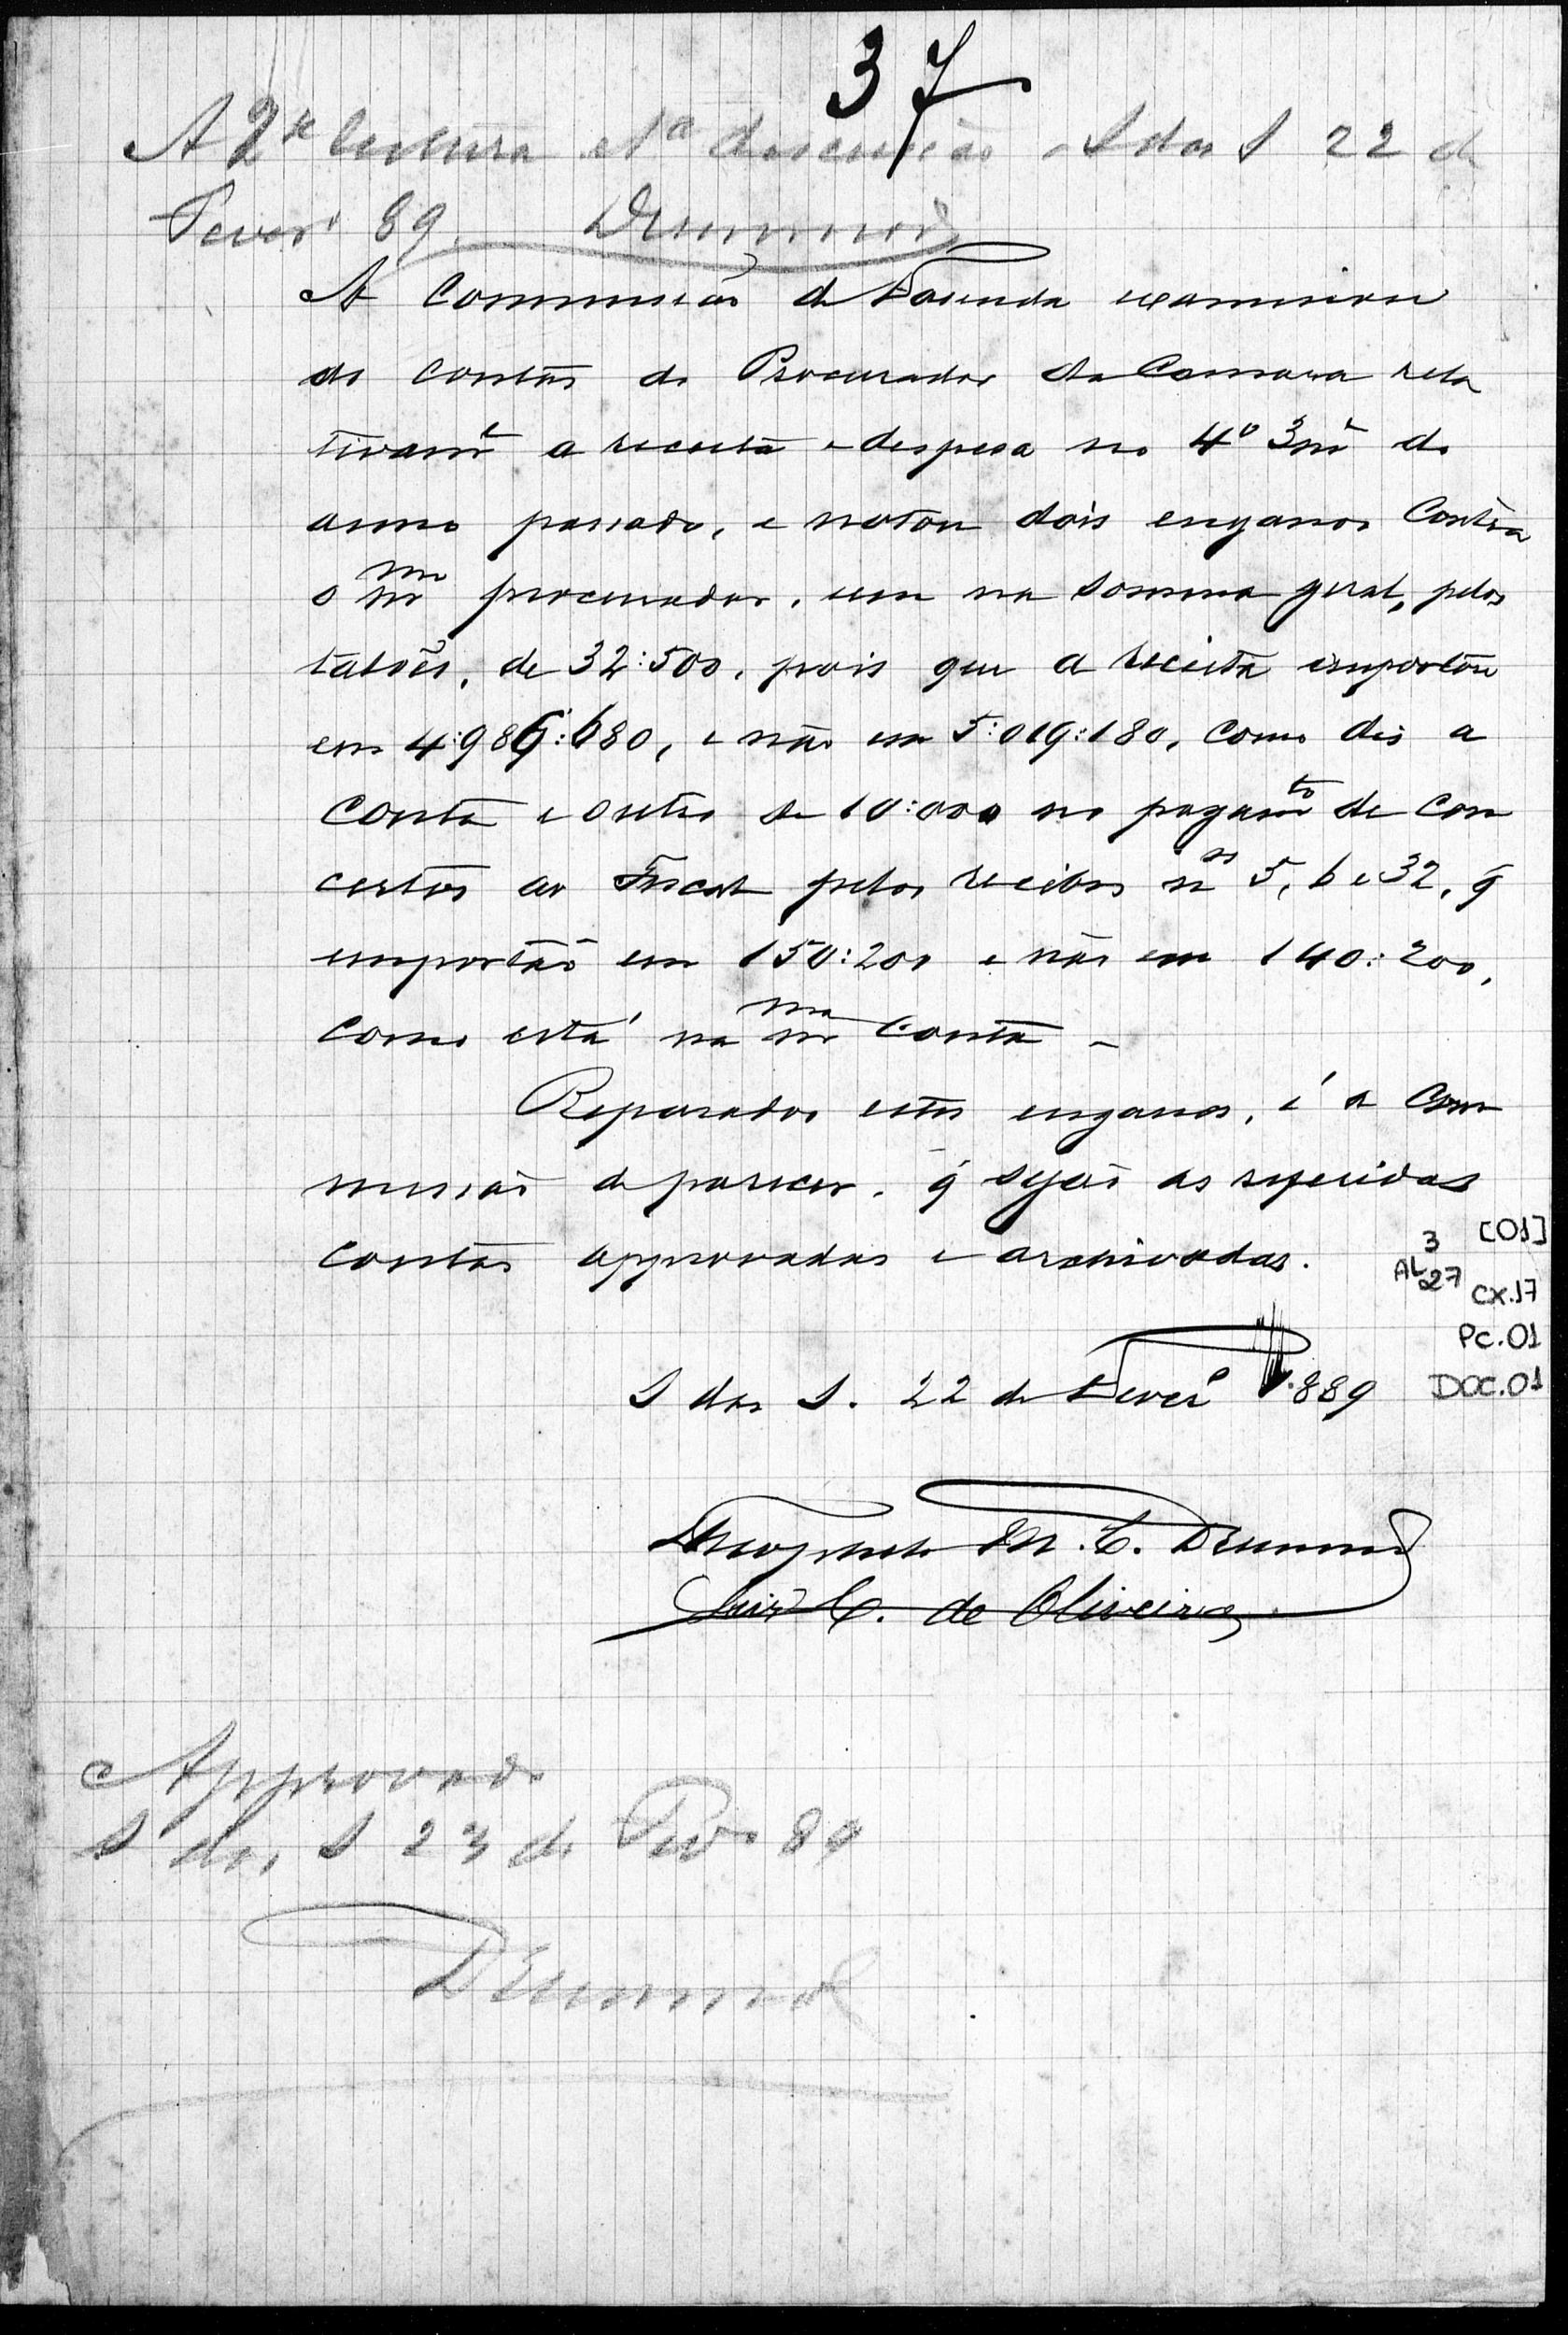 37
A 2ª leitura e 1ª discussão. S das S 22 de
Fever 89. Drummond
A Commissão de Fasenda examinou
as contas do Procurador da Camara rela
tivamᵉ a receita e despesa no 4º 3mᵉ do
anno passado, e notou dois enganos contra
o mᵐᵒ procurador, um na somma geral, pelos
talões, de 32:500, pois que a receita importou
em 4:986:680, e não em 5:019:180, como dis a
conta e outro de 10:000 no pagamᵗᵒ de con
certos ao Fiscal pelos recibos nᵒˢ 5, 6 e 32, q̃
importão em 150:200 e não em 140:200,
como está na mᵐᵃ conta –
Reparados estes enganos, é a Com
missão de parecer, q̃ sejão as referidas
contas approvadas e archivadas.
3 [01]
AL 27 CX.17
PC.01
DOC.01
S das S. 22 de Feverº 1889
M. C. Drummond
Luis C. de Oliveira
Approvado
S das S 23 de Fevº 89
Drummond